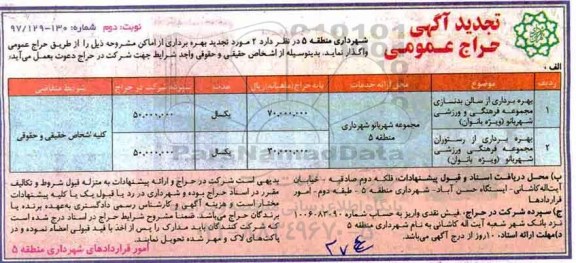 تجدید آگهی
حراج عمومی
نوبت: دوم
شماره: ۱۳۰-۹۷/۱۲۹
شهرداری منطقه ۵ در نظر دارد ۲ مورد تجدید بهره برداری از اماکن مشروحه ذیل را از طریق حراج عمومی
واگذار نماید. بدینوسیله از اشخاص حقیقی و حقوقی واجد شرایط جهت شرکت در حراج دعوت بعمل می‌آید:
الف.
ردیف موضوع محل ارائه خدمات پایه حراج ماهیانه ریال مدت سپرده شرکت در حراج شرایط متقاضی
۱ بهره برداری از سالن بدنسازی مجموعه فرهنگی و ورزشی شهربانو (ویژه بانوان) ۷۰.۰۰۰.۰۰۰ یکسال ۵۰.۰۰۰.۰۰۰
مجموعه شهربانو شهرداری منطقه ۵
کلیه اشخاص حقیقی و حقوقی
۲ بهره برداری از رستوران مجموعه فرهنگی ورزشی شهربانو (ویژه بانوان) ۳۰.۰۰۰.۰۰۰ یکسال ۵۰.۰۰۰.۰۰۰
ب) محل دریافت اسناد و قبول پیشنهادات: فلکه دوم صادقیه - خیابان
آیت‌اله کاشانی - ایستگاه حسن آباد - شهرداری منطقه ۵ - طبقه دوم - امور
قراردادها
ج) سپرده شرکت در حراج: فیش نقدی واریز به حساب شماره
نزد بانک شهر شعبه آیت اله کاشانی به نام شهرداری منطقه ۵
د) مهلت ارائه اسناد: ۱۰ روز از درج آگهی می‌باشد.
بدیهی است شرکت در حراج و ارائه پیشنهادات به منزله قبول شروط و تکالیف
مقرر در اسناد حراج بوده و شهرداری در رد یا قبول یک یا کلیه پیشنهادات
مختار است و هزینه آگهی و کارشناس رسمی دادگستری به‌عهده برنده یا
برندگان حراج می‌باشد. ضمنا مشروح شرایط حراج در اسناد درج شده است
شرکت کنندگان باید مدارک را پس از اخذ با قید قبولی امضاء نموده و در
پاکت‌های لاک و مهر شده تحویل نمایند.
امور قراردادهای شهرداری منطقه ۵